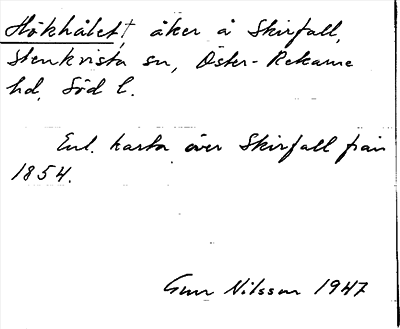 Hökhålet,† åker å Skirfall,
Stenkvista sn, Öster-Rekarne
hd, Söd l.
Enl. karta över Skirfall från
1854.
Gun Nilsson 1947